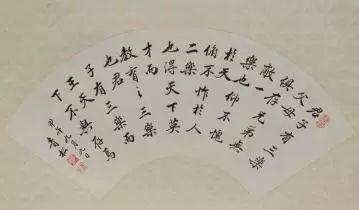 君子有三樂
父母
俱存兄弟無
故一
樂也仰不愧
於天
俯不怍於人
二樂
也得天下英
才而
教育之三樂
也君
子有三樂而
王天
下不與存焉